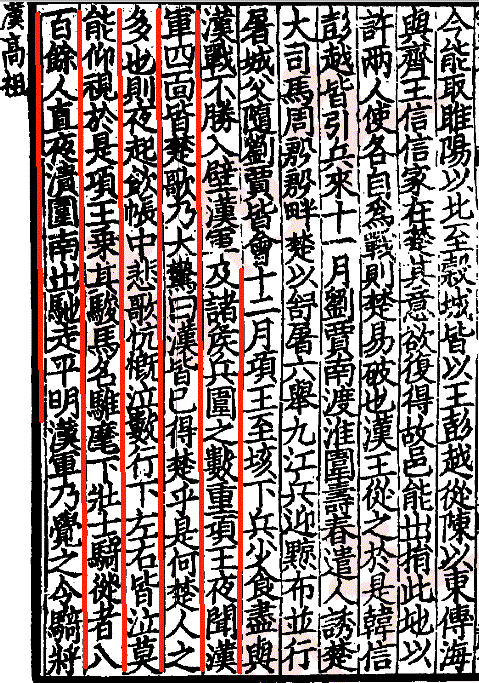 今能取睢陽以北至穀城皆以王彭越從陳以東傅海
與齊王信信家在楚其意欲復得故邑能出捐此地以
許兩人使各自為戰則楚易破也漢王從之於是韓信
彭越皆引兵來十一月劉賈南渡淮圍壽春遣人誘楚
大司馬周殷殷畔楚以舒屠六舉九江兵迎黥布並行
屠城父隨劉賈皆會十二月項王至垓下兵少食盡與
漢戰不勝入壁漢軍及諸侯兵圍之數重項王夜聞漢
軍四面皆楚歌乃大驚曰漢皆已得楚乎是何楚人之
多也則夜起飲帳中悲歌忼慨泣數行下左右皆泣莫
能仰視於是項王乘其駿馬名騅麾下壯士騎從者八
百餘人直夜潰圍南出馳走平明漢軍乃覺之令騎將
漢高祖